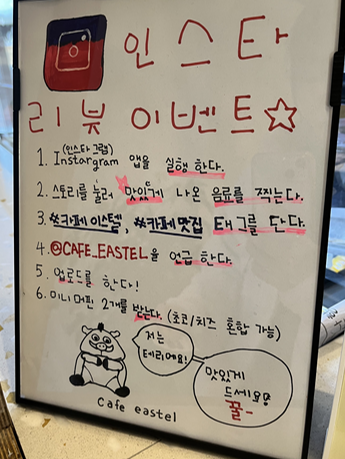 인스타
리뷰 이벤트☆
(인스타그램)
1. Instargram 앱을 실행 한다.
2. 스토리를 눌러 맛있게 나온 음료를 찍는다.
3. #카페이스텔, #카페맛집 태그를 단다.
4. @CAFE_EASTEL을 언급 한다.
5. 업로드를 한다!
6. 미니 머핀 2개를 받는다. (초코/치즈 혼합 가능)
저는
테리에요!
맛있게
드세요!
꿀~
Cafe eastel